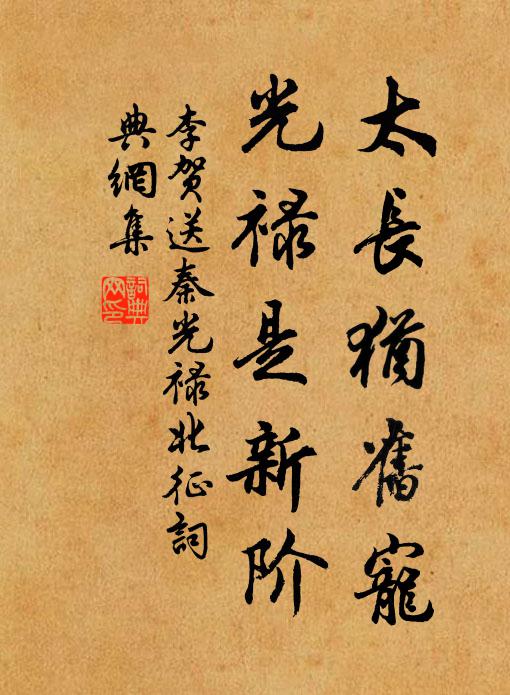 太長猶舊寵
光祿是新阶
李贺送秦光禄北征詞
典網集
詞典
网印